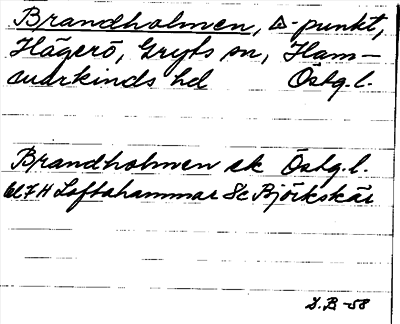 Brandholmen, △-punkt,
Hägerö, Gryts sn, Ham-
markinds hd Östg. l.
Brandholmen ek Östg. l.
7 H Loftahammar Sc Björkskär
D.B -58